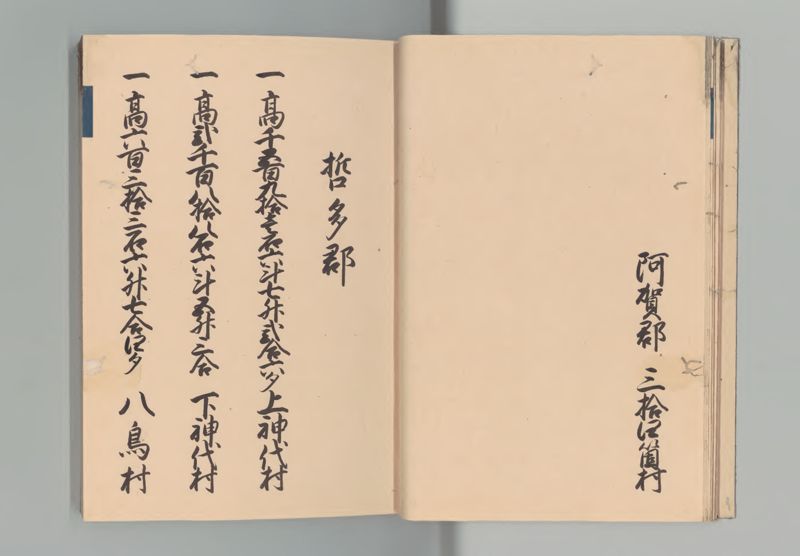 阿賀郡 三拾四箇村
哲多郡
一 高千五百九拾壱石六斗七升弐合六夕 上神代村
一 高弐千百八拾八石六斗五升三合 下神代村
一 高六百三拾三石六升七合四夕 八鳥村